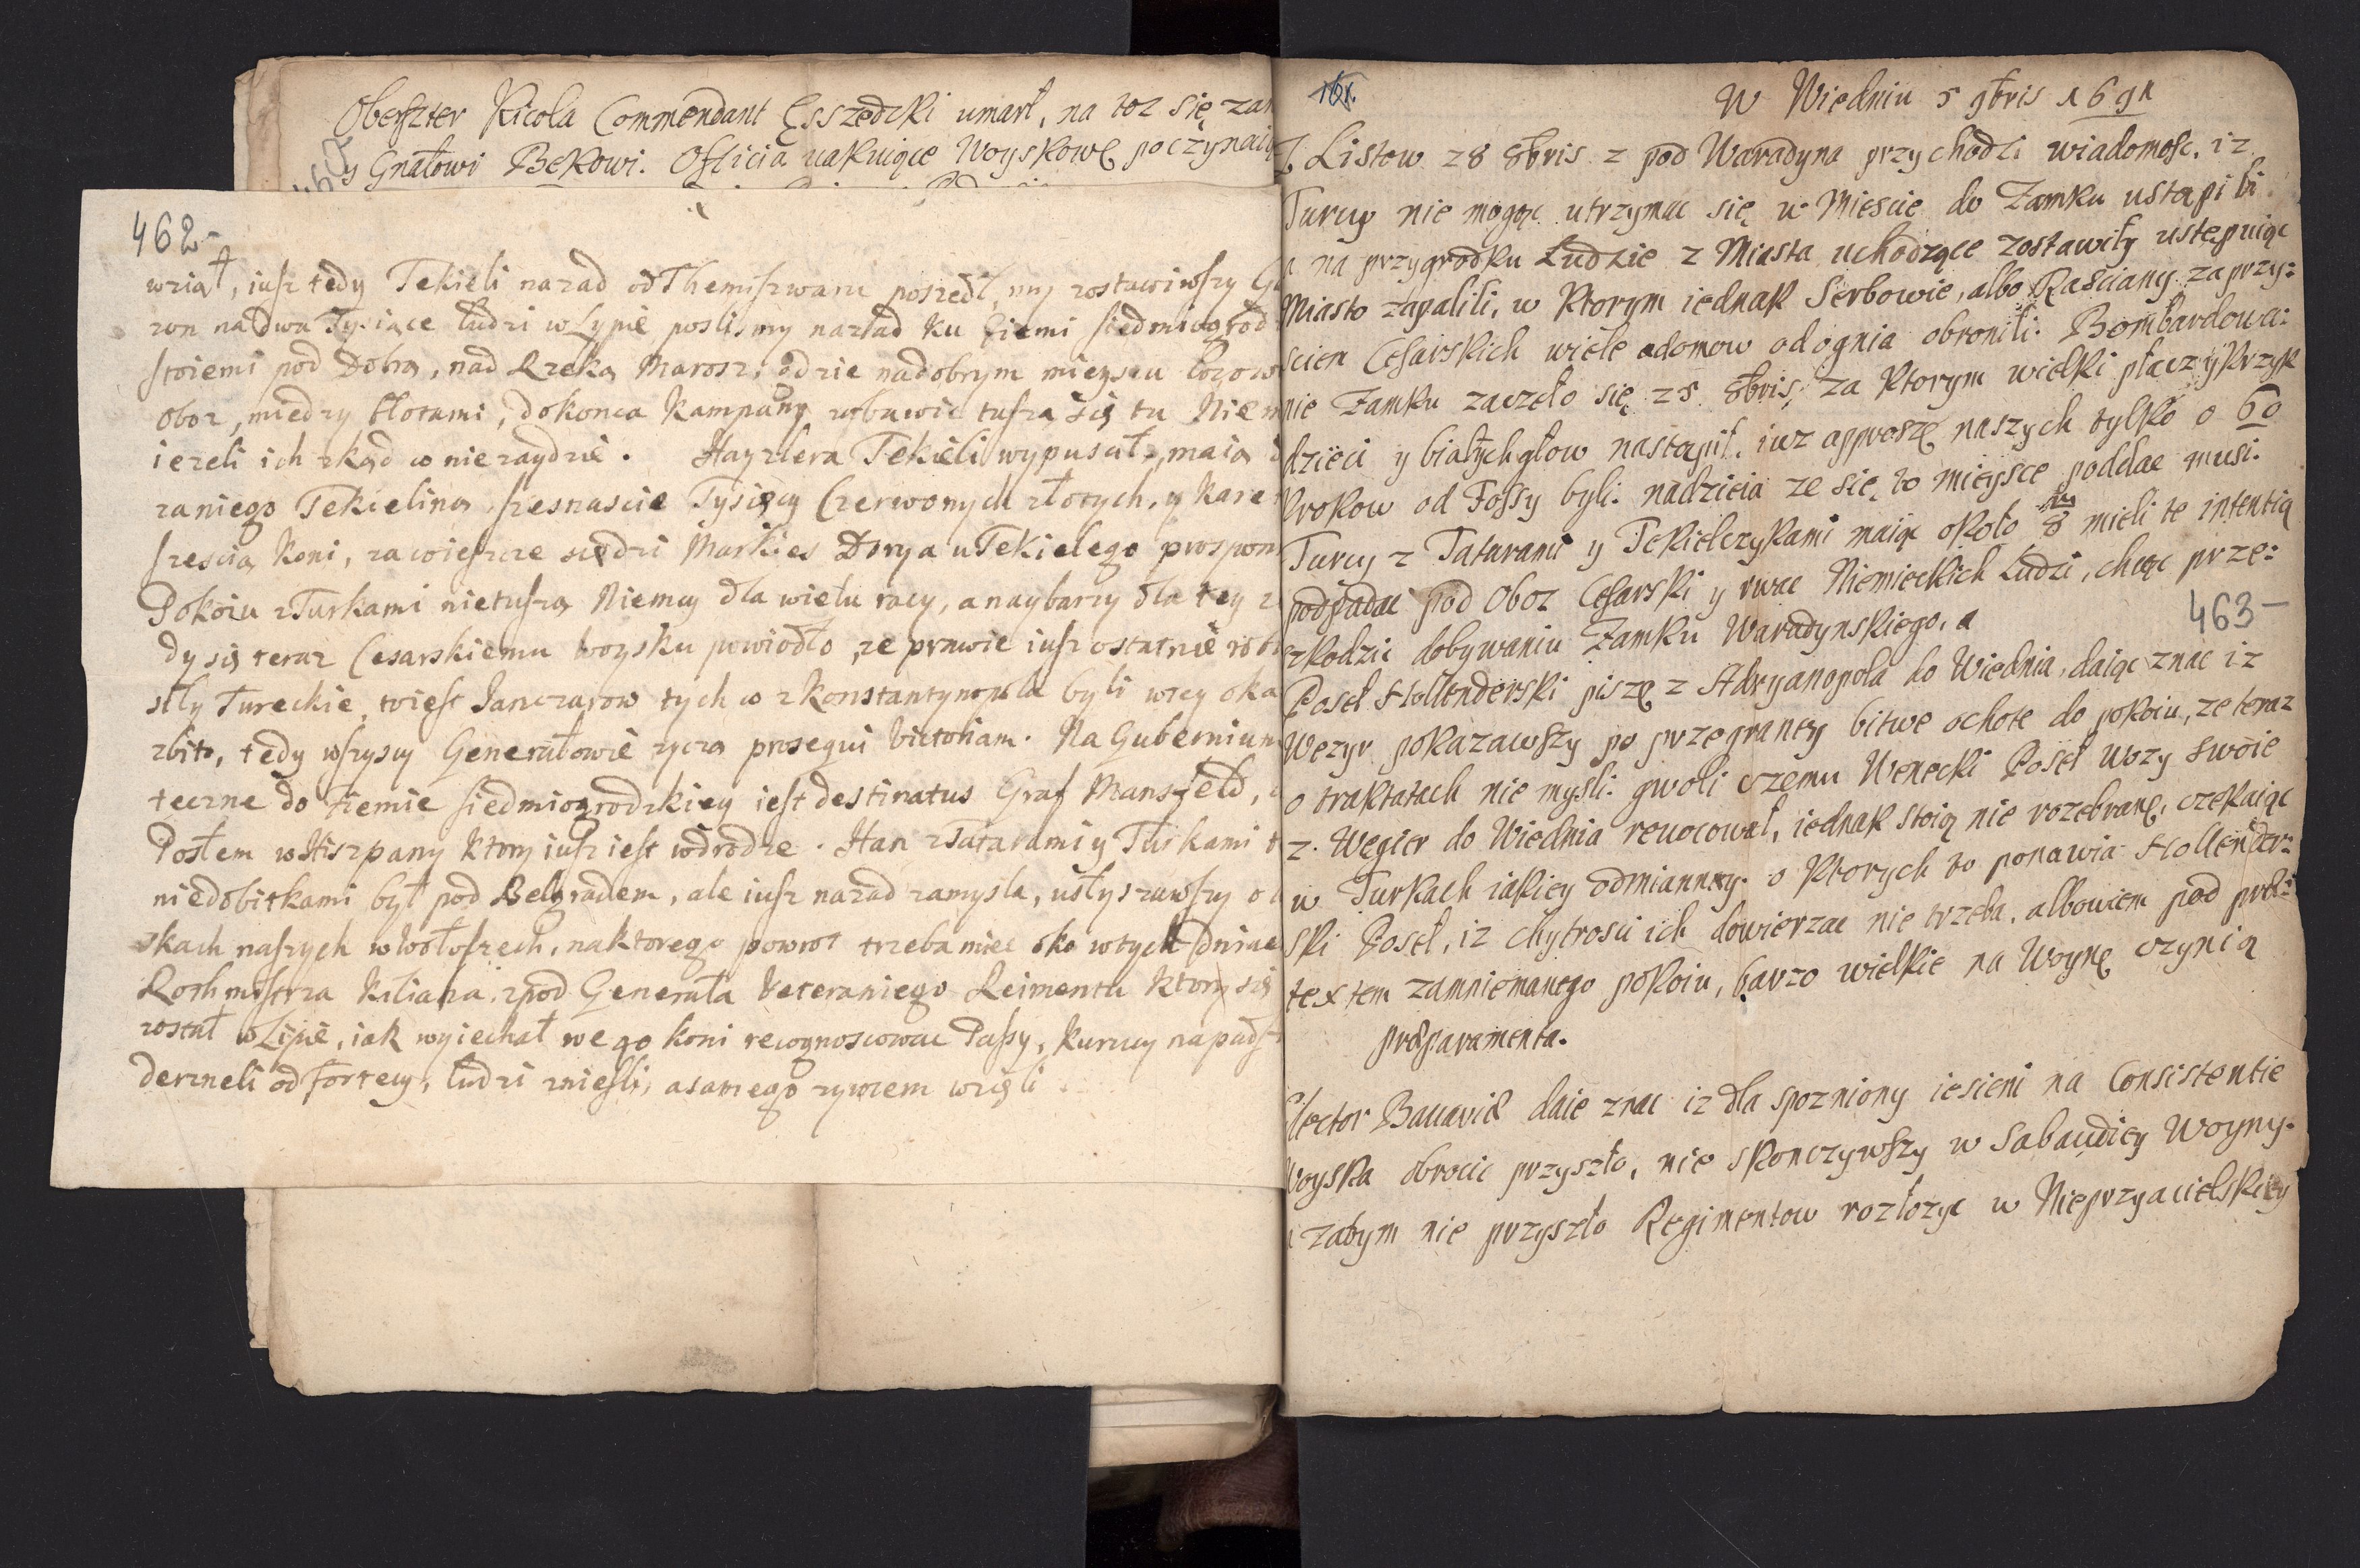 Oberszter Nicola Commendant Esszedzki umarł, na toz się zan
y Gnałowi Bekowi. Officia uakuiące Woyskowę poczynaią
462-
wziął, iusz tedy Tekieli nazad od Themiszwaru poszedł, my zostawiwszy
zon na dwa Tysiące ludzi w Lypie poslismy nazad ku Ziemi siedmiogrod
stoiemi pod Dobrą, nad Rzeką Marosz, gdzie na dobrym mieyscu
oboz, miedzy błotami, do konca Kampany zabawic tuszą się tu Niem
iezeli ich zkąd co nie zaydzie. Hayzlera Tekieli wypuscił, maią
za niego Tekielina szesnascie Tysięcy Czerwonych złotych, y kare
szescią koni, za co ieszcze siedzi Markies Dorya u Tekielego
Pokoiu z Turkami nie tuszą Niemcy dla wielu racy, a naybarzy dla tey
dy się teraz Cesarskiemu woysku powiodło, ze prawie iusz ostatnie
siły Tureckie, to iest Janczarow tych co z Konstantynopola byli wzcy
zbito, tedy wszyscy Generałowie zyczą prosequi Victoriam. Na Gubernium
teczne do Ziemie siedmiogrodzkiey iest destinatus Graf Mansfeld,
Posłem w Hiszpany ktory iusz iest w drodze. Han z Tatarami y Turkami
niedobitkami był pod Belgradem, ale iusz nazad zamysla, usłyszawszy o
skach naszych w Wołoszech, na ktorego powrot trzeba miec oko w tych dniac
Rothmistrza Kiliana, z pod Generała Veteraniego Reimentu ktory się
został w Lipie, iak wyiechał we 90 koni recognoscowac Passy, Kurucy napadsz
derzneli od fortecy, ludzi zniesli, a samego zywcem wzięli
161.
W Wiedniu 5 9bris 1691
Z Listow 28 8bris z pod Waradyna przychodzi wiadomosc, iz
Turcy nie mogąc utrzymac się w Miescie do Zamku ustąpili
a na przygrodku Ludzie z Miasta uchodzące zostawiły ustępuiąc
Miasto zapalili, w ktorym iednak Serbowie, albo Rasciany za przy:
sciem Cesarskich wiele adomow od ognia obronili. Bombardowa:
nie Zamku zaczeło się 25 8bris, za ktorym wielki płacz y krzyk
dzieci y białychgłow nastąpił, iuz approszę naszych tylko o 60
krokow od Fossy byli. nadzieia ze się to mieysce poddac musi.
Turcy z Tatarami y Tekielczykami maiąc około 8 mieli te intentią
podpadac pod Oboz Cesarski y rwac Niemieckich Ludzi, chcąc prze:
szkodzic dobywaniu Zamku Waradynskiego, a
463-
Poseł Hollenderski piszę z Adryanopola do Wiednia, daiąc znac iz
Wezyr pokazawszy po przegraney bitwe ochote do pokoiu, ze teraz
o traktatach nie mysli. gwoli czemu Wenecki Poseł wozy swoie
z Wegier do Wiednia reuocował, iednak stoią nie rozebranę, czekaiąc
w Turkach iakiey odmianney. o ktorych to ponawia Hollender:
ski Poseł, iz chytrosci ich dowierzac nie trzeba, albowiem pod præ:
textem zamniemanego pokoiu, barzo wielkie na Woynę czynią
præparamenta.
Elector Bauariæ daie znac iz dla spozniony iesieni na Consistentie
Woyska obrocic przyszło, nie skonczywszy w Sabaudiey Woyny.
a zatym nie przyszło Regimentow rozłozyc w Nieprzyacielskiey